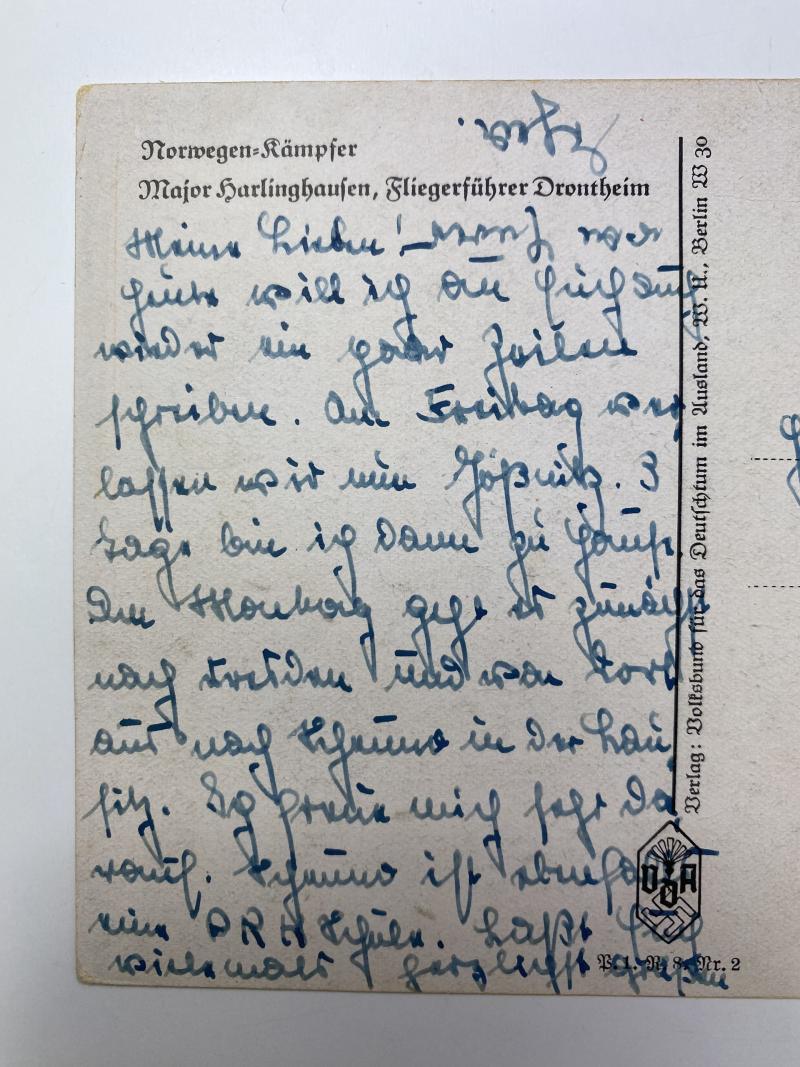 Norwegen-Kämpfer
Major Harlinghausen, Fliegerführer Drontheim
Meine Lieben!
Heute will ich an Euch auch
wieder ein paar Zeilen
schreiben. Am Freitag ver
lassen wir nun Gößnitz. 3
Tage bin ich dann zu Hause.
Am Montag geht es zunächst
nach Dresden und von dort
aus nach in der Lau
sitz. Ich freue mich sehr da
rauf. ist ebenfalls
eine Schule. Laßt Euch
vielemals herzlichst grüßen
Verlag: Volksbund für das Deutschtum im Ausland, W. A., Berlin W 30
VDA
P. 1. R. 8. Nr. 2